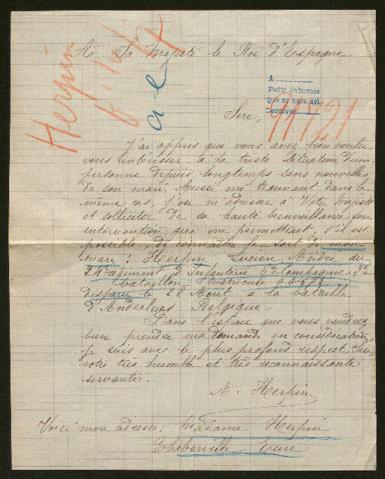 Herpin
A Sa Majesté le Roi d'Espagne
A
Pedir informes
Que se haga así
Devolver
Sire,
J'ai appris que vous avez bien voulu
vous intéresser à la triste situation d'une
personne depuis longtemps sans nouvelles
de son mari. Aussi me trouvant dans le
même cas, j'ose m'adresser à Votre Majesté
et solliciter de sa haute bienveillance son
intervention qui me permettrait, s'il est
possible, de connaître le sort de mon
mari : Herpin Lucien André du
24e régiment d'Infanterie 6e Compagnie, 2e
bataillon, matricule
disparu le 22 Août à la bataille
d'Anderlues Belgique.
Dans l'espoir que vous voudrez
bien prendre ma demande en considération,
je suis avec le plus profond respect, Sire,
votre très humble et très reconnaissante
servante.
A. Herpin
Voici mon adresse : Madame Herpin
Theberville Eure